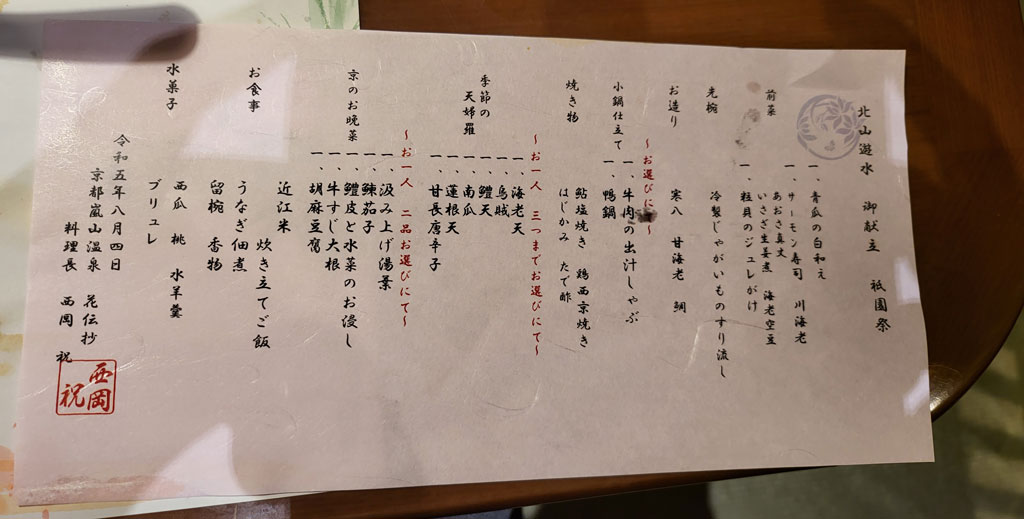 北山遊水 御献立 祇園祭
前菜
一、青瓜の白和え
一、サーモン寿司 川海老
あおさ真丈
いさぎ生姜煮 海老空豆
一、粒貝のジュレがけ
先椀
冷製じゃがいものすり流し
お造り
寒八 甘海老 鯛
〜お選びに〜
小鍋仕立て
一、牛肉の出汁しゃぶ
一、鴨鍋
焼き物
鮎塩焼き 鶏西京焼き
はじかみ たで酢
〜お一人 三つまでお選びにて〜
季節の
天婦羅
一、海老天
一、烏賊
一、鱧天
一、南瓜
一、蓮根天
一、甘長唐辛子
〜お一人 二品お選びにて〜
京のお晩菜
一、汲み上げ湯葉
一、鰊茄子
一、鱧皮と水菜のお浸し
一、牛すじ大根
一、胡麻豆腐
お食事
近江米 炊き立てご飯
うなぎ佃煮
留椀 香物
水菓子
西瓜 桃 水羊羹
ブリュレ
令和五年八月四日
京都嵐山温泉 花伝抄
料理長 西岡 祝
西岡
祝